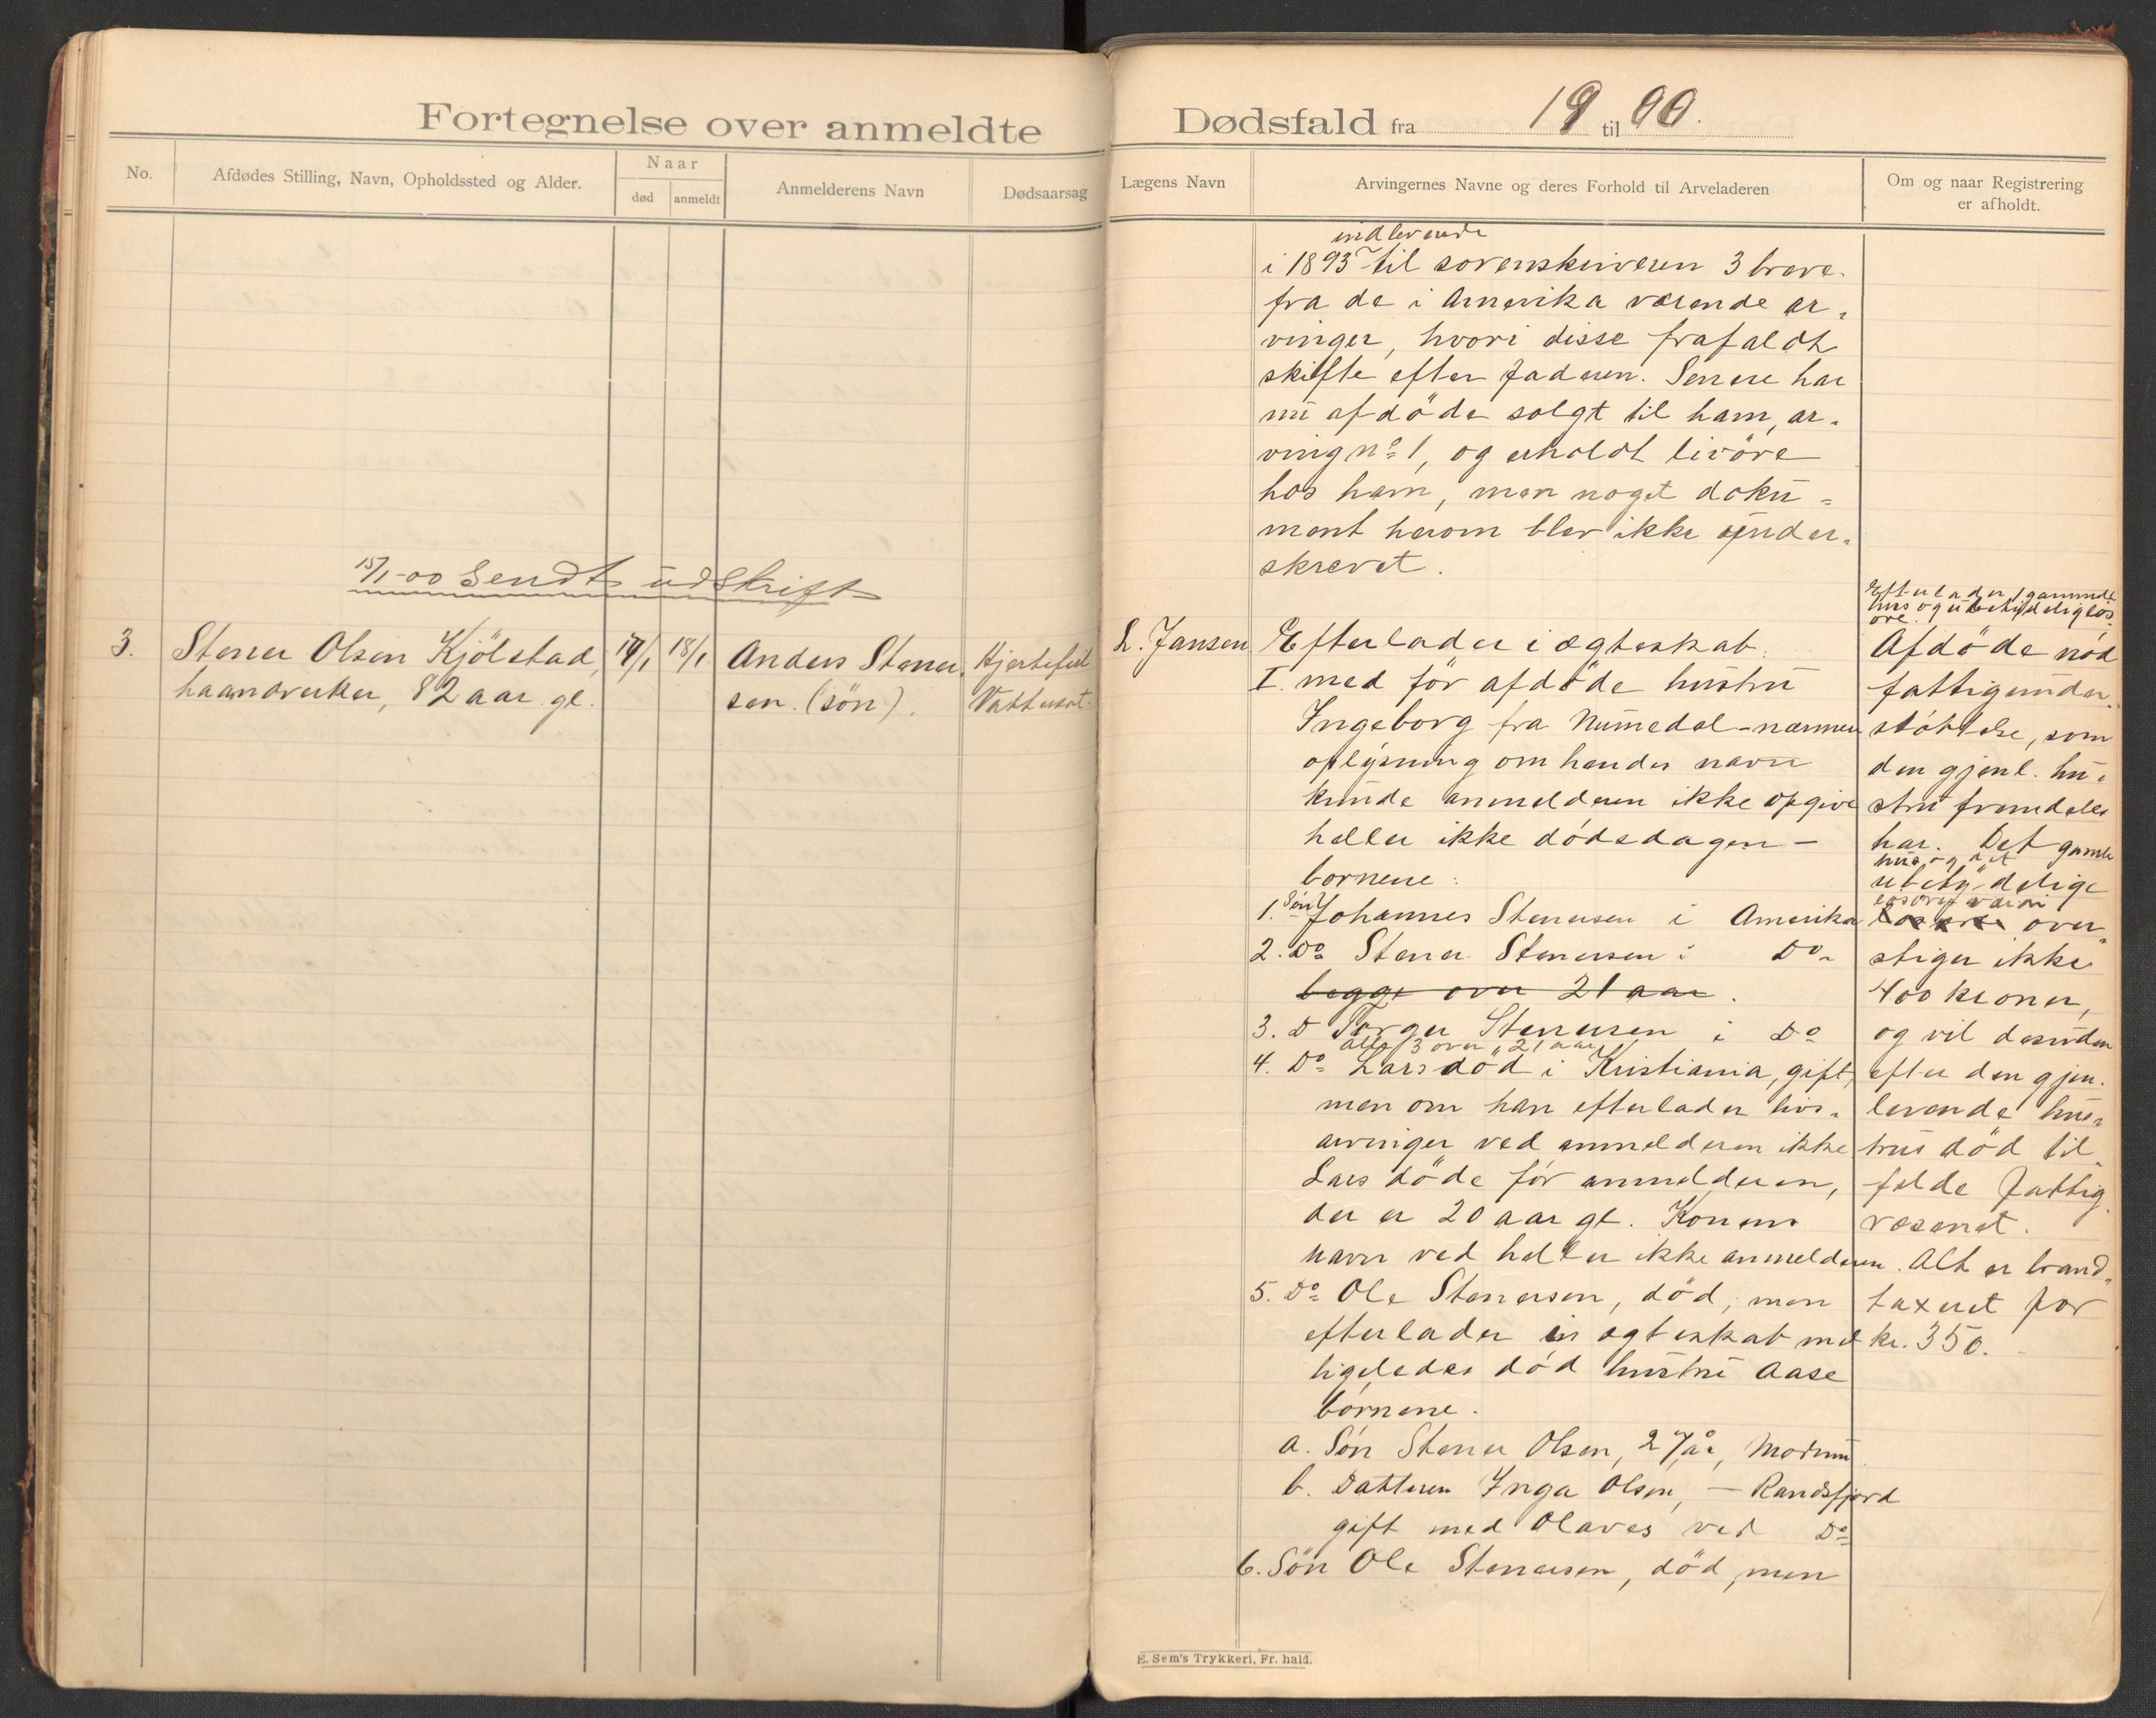 Fortegnelse over anmeldte
No.
Afdødes Stilling, Navn, Opholdssted og Alder.
Naar
død
anmeldt
Anmelderens Navn
Dødsaarsag
15/1-00 Sendt udskrift
3.
Stener Olsen Kjölstad,
haandverker, 82 aar gl.
18/1
Anders Stener-
sen. (søn).
Hjertefeil
Vattersot.
Dødsfald fra 19 til 00.
Lægens Navn
Arvingernes Navne og deres Forhold til Arveladeren
Om og naar Registrering
er afholdt.
indlevende
i 1893 til sorenskriveren 3 breve
fra de i Amerika værende ar-
vinger, hvori disse frafaldt
skifte efter faderen. Senere har
nu afdöde solgt til ham, ar-
ving no 1, og erholdt livöre
hos ham, men noget doku-
ment herom blev ikke under-
skrevet.
L. Jansen
Efterlader i ægteskab
I. med för afdöde hustru
Ingeborg fra Numedal - nærmere
oplysning om hendes navn
kunde anmelderen ikke opgive
heller ikke dødsdagen -
børnene:
1. Søn Johannes Stenersen i Amerika
2. Do Stener Stenersen i Do
begge over 21 aar.
3. D Torger Stenersen i Do
alle 3 over 21 aar
4. Do Lars död i Kristiania, gift,
men om han efterlader livs-
arvinger ved anmelderen ikke
Lars döde för anmelderen,
der er 20 aar gl. Konens
navn ved heller ikke anmelderen.
5. Do Ole Stenersen, död, men
efterlader i ægteskab med
ligeledes död hustru Aase
börnene.
a. Sön Stener Olsen, 27 år, Modum
b. Datteren Inga Olsen, - Randsfjord
gift med Olaves ved Do
6. Sön Ole Stenersen, död, men
Efterlader gammelt
hus og ubetydelig løs-
øre.
Afdöde nöd
fattigunder-
støttelse, som
den gjenl. hu-
stru fremdeles
har. Det gamle
hus og det
ubetydelige
løsöres værdi
over-
stiger ikke
400 kroner,
og vil desuden
efter den gjen-
levende hus-
trus död til-
falde fattig-
væsenet.
Alt er brand-
taxeret for
kr. 350.
E. Sem's Trykkeri, Fr. hald.